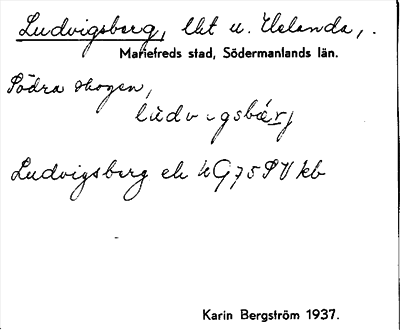 Ludvigsberg, lht u. Helanda,.
Mariefreds stad, Södermanlands län.
Södra skogen,
lùdvigsbærj
Ludvigsberg ek KG75SV kb
Karin Bergström 1937.